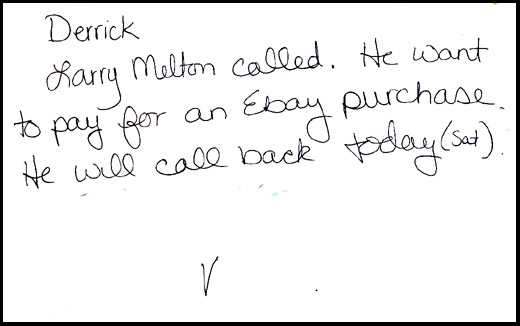 Derrick
Larry Melton called. He want
to pay for an Ebay purchase.
He will call back today (Sat).
V